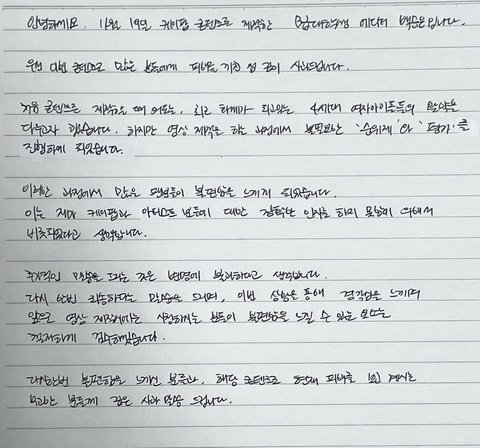 안녕하세요. 11월 19일 케이팝 콘텐츠를 제작한 대학생 에디터 백승은입니다.
우선 이번 콘텐츠로 많은 분들에게 피해를 끼친 점 깊이 사과드립니다.
처음 콘텐츠를 제작할 때 의도는, 최근 화제가 되고있는 4세대 여자아이돌들의 활약을
다루고자 했습니다. 하지만 영상 제작을 하는 과정에서 불필요한 '순위제'와 '평가'를
진행하게 되었습니다.
이러한 과정에서 많은 팬분들이 불편함을 느끼게 되었습니다.
이는 제가 케이팝과 아티스트 분들에 대한 정확한 인지를 하지 못함에 의해서
비롯되었다고 생각합니다.
추가적인 말씀을 드리는 것은 변명에 불과하다고 생각합니다.
다시 한번 죄송하다는 말씀을 드리며, 이번 상황을 통해 경각심을 느끼며
앞으로 영상 제작에서는 시청하시는 분들이 불편함을 느낄 수 있는 요소는
철저하게 검수하겠습니다.
다시한번 불편함을 느끼신 분들과, 해당 콘텐츠로 현재 피해를 보고 계시는
무고한 분들께 깊은 사과 말씀 드립니다.